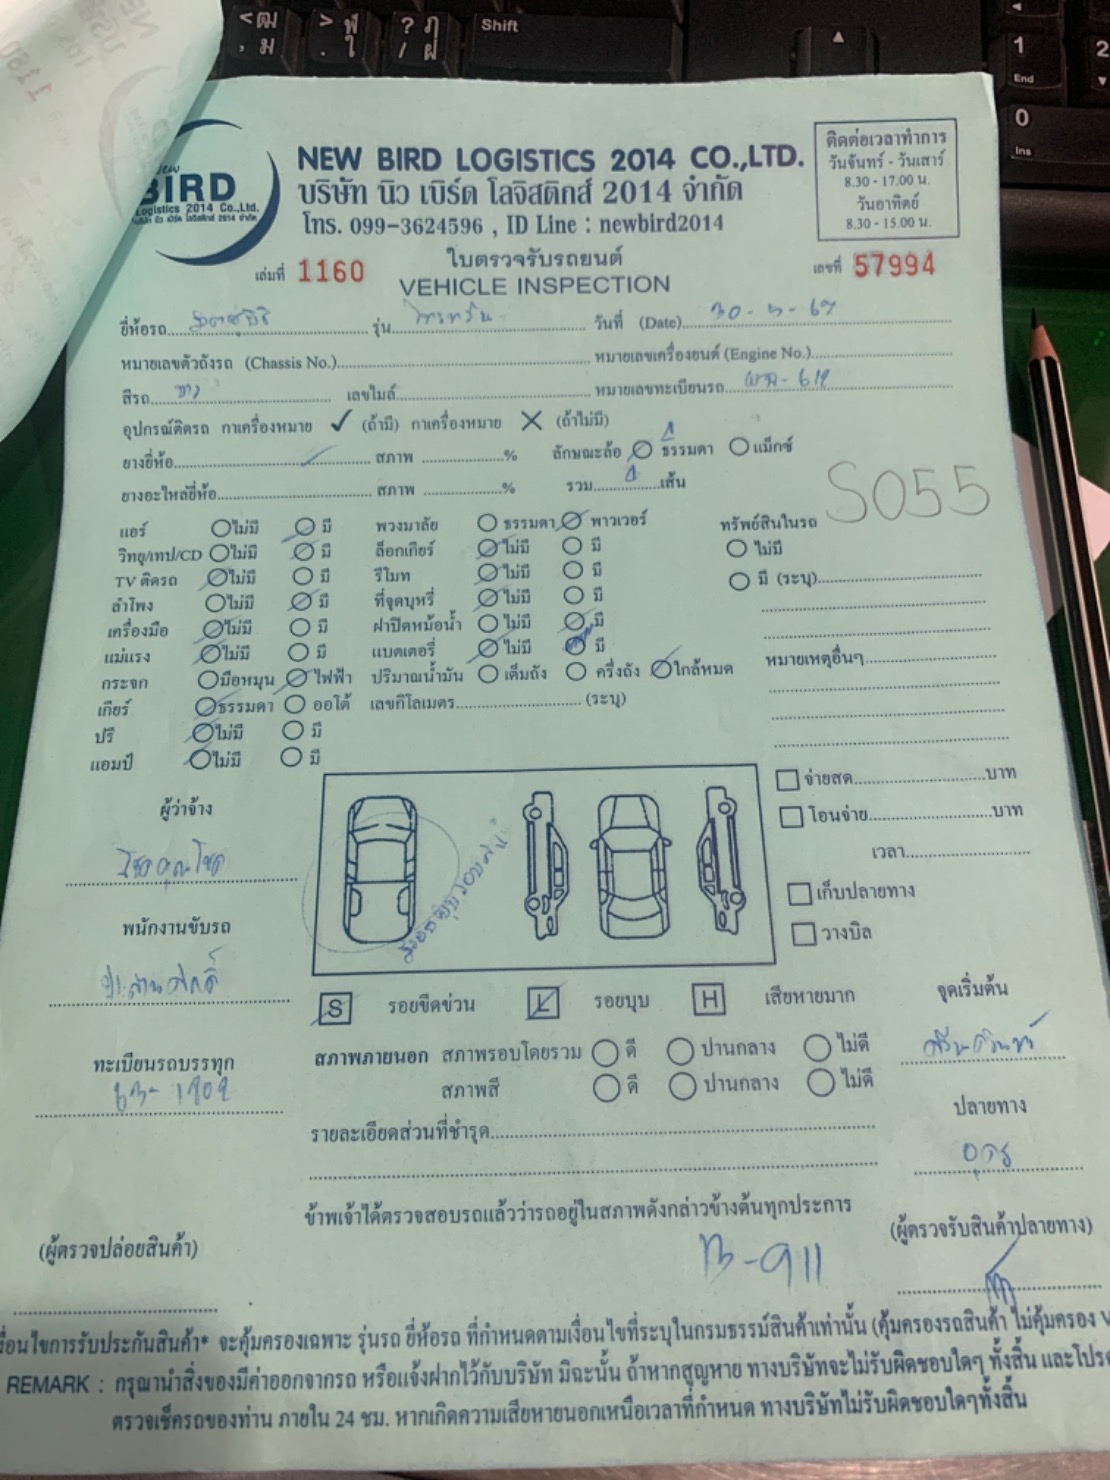 <ฒ
, ม
> ฬ
. ใ
? ฦ
/ ฝ
Shift
1
End
2
0
Ins
NEW
BIRD
Logistics 2014 Co.,Ltd.
บริษัท นิว เบิร์ด โลจิสติกส์ 2014 จำกัด
NEW BIRD LOGISTICS 2014 CO.,LTD.
บริษัท นิว เบิร์ด โลจิสติกส์ 2014 จำกัด
โทร. 099-3624596 , ID Line : newbird2014
ติดต่อเวลาทำการ
วันจันทร์ - วันเสาร์
8.30 - 17.00 น.
วันอาทิตย์
8.30 - 15.00 น.
เล่มที่ 1160
ใบตรวจรับรถยนต์
VEHICLE INSPECTION
เลขที่ 57994
ยี่ห้อรถ รุ่น วันที่ (Date) 30-5-67
หมายเลขตัวถังรถ (Chassis No.) หมายเลขเครื่องยนต์ (Engine No.)
สีรถ ขาว เลขไมล์ หมายเลขทะเบียนรถ
อุปกรณ์ติดรถ กาเครื่องหมาย ✓ (ถ้ามี) กาเครื่องหมาย ✕ (ถ้าไม่มี)
ยางยี่ห้อ สภาพ % ลักษณะล้อ ธรรมดา แม็กซ์
ยางอะไหล่ยี่ห้อ สภาพ % รวม เส้น
S055
แอร์ ไม่มี มี พวงมาลัย ธรรมดา พาวเวอร์ ทรัพย์สินในรถ
วิทยุ/เทป/CD ไม่มี มี ล็อกเกียร์ ไม่มี มี ไม่มี
TV ติดรถ ไม่มี มี รีโมท ไม่มี มี มี (ระบุ)
ลำโพง ไม่มี มี ที่จุดบุหรี่ ไม่มี มี
เครื่องมือ ไม่มี มี ฝาปิดหม้อน้ำ ไม่มี มี
แม่แรง ไม่มี มี แบตเตอรี่ ไม่มี มี หมายเหตุอื่นๆ
กระจก มือหมุน ไฟฟ้า ปริมาณน้ำมัน เต็มถัง ครึ่งถัง ใกล้หมด
เกียร์ ธรรมดา ออโต้ เลขกิโลเมตร (ระบุ)
ปรี ไม่มี มี
แอมป์ ไม่มี มี
จ่ายสด บาท
โอนจ่าย บาท
เวลา
เก็บปลายทาง
วางบิล
ผู้ว่าจ้าง
พนักงานขับรถ
ทะเบียนรถบรรทุก
S รอยขีดข่วน L รอยบุบ H เสียหายมาก
จุดเริ่มต้น
สภาพภายนอก สภาพรอบโดยรวม ดี ปานกลาง ไม่ดี
สภาพสี ดี ปานกลาง ไม่ดี
ปลายทาง
อุดร
รายละเอียดส่วนที่ชำรุด
ข้าพเจ้าได้ตรวจสอบรถแล้วว่ารถอยู่ในสภาพดังกล่าวข้างต้นทุกประการ
(ผู้ตรวจปล่อยสินค้า)
(ผู้ตรวจรับสินค้าปลายทาง)
งื่อนไขการรับประกันสินค้า* จะคุ้มครองเฉพาะ รุ่นรถ ยี่ห้อรถ ที่กำหนดตามเงื่อนไขที่ระบุในกรมธรรม์สินค้าเท่านั้น (คุ้มครองรถสินค้า ไม่คุ้มครอง
REMARK : กรุณานำสิ่งของมีค่าออกจากรถ หรือแจ้งฝากไว้กับบริษัท มิฉะนั้น ถ้าหากสูญหาย ทางบริษัทจะไม่รับผิดชอบใดๆ ทั้งสิ้น และโปรด
ตรวจเช็ครถของท่าน ภายใน 24 ชม. หากเกิดความเสียหายนอกเหนือเวลาที่กำหนด ทางบริษัทไม่รับผิดชอบใดๆทั้งสิ้น